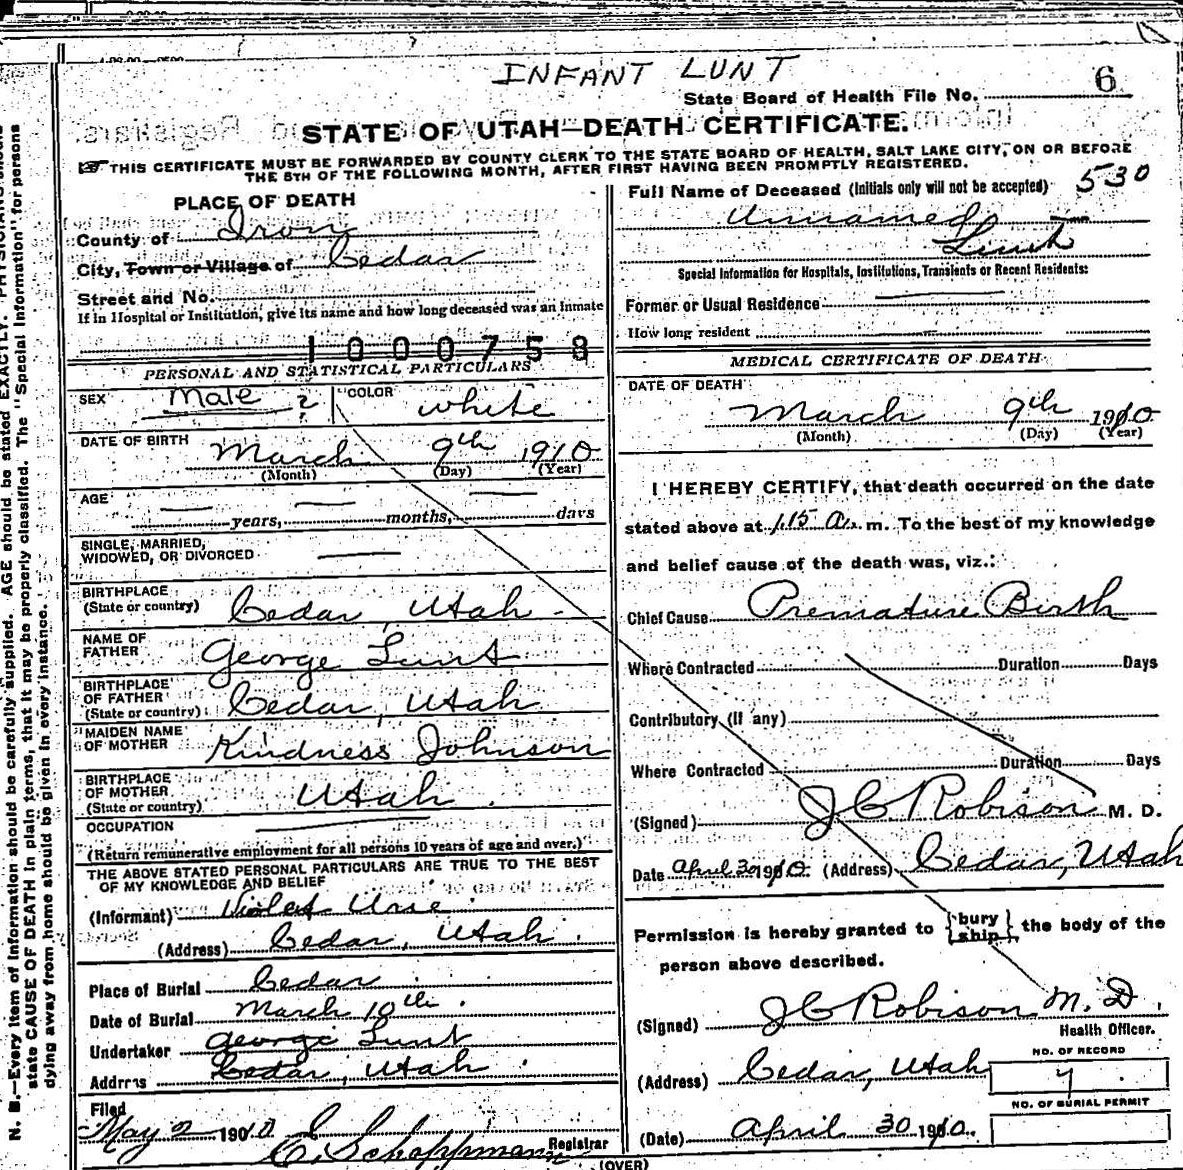 INFANT LUNT
State Board of Health File No. 6
STATE OF UTAH—DEATH CERTIFICATE.
☞THIS CERTIFICATE MUST BE FORWARDED BY COUNTY CLERK TO THE STATE BOARD OF HEALTH, SALT LAKE CITY, ON OR BEFORE
THE 5TH OF THE FOLLOWING MONTH, AFTER FIRST HAVING BEEN PROMPTLY REGISTERED.
PLACE OF DEATH
County of Iron
City, Town or Village of Cedar
Street and No.
If in Hospital or Institution, give its name and how long deceased was an Inmate
1000758
PERSONAL AND STATISTICAL PARTICULARS
SEX Male ? COLOR white
DATE OF BIRTH
March 9th 1910
(Month) (Day) (Year)
AGE
years, months, days
SINGLE, MARRIED,
WIDOWED, OR DIVORCED
BIRTHPLACE
(State or country) Cedar, Utah
NAME OF
FATHER George Lunt
BIRTHPLACE
OF FATHER
(State or country) Cedar, Utah
MAIDEN NAME
OF MOTHER Kindness Johnson
BIRTHPLACE
OF MOTHER
(State or country) Utah
OCCUPATION
(Return remunerative employment for all persons 10 years of age and over.)
THE ABOVE STATED PERSONAL PARTICULARS ARE TRUE TO THE BEST
OF MY KNOWLEDGE AND BELIEF
(Informant) Violet Urie
(Address) Cedar, Utah.
Place of Burial Cedar
Date of Burial March 10th.
Undertaker George Lunt
Address Cedar, Utah
Filed
May 2 1910 C. Schoppmann Registrar
530
Full Name of Deceased (Initials only will not be accepted)
Unnamed
Lunt
Special Information for Hospitals, Institutions, Transients or Recent Residents:
Former or Usual Residence
How long resident
MEDICAL CERTIFICATE OF DEATH
DATE OF DEATH
March 9th 1910
(Month) (Day) (Year)
I HEREBY CERTIFY, that death occurred on the date
stated above at 1.15 A. m. To the best of my knowledge
and belief cause of the death was, viz.:
Chief Cause Premature Birth
Where Contracted Duration Days
Contributory (If any)
Where Contracted Duration Days
(Signed) J C Robison M. D.
Date April 30 1910. (Address) Cedar, Utah
Permission is hereby granted to {bury ship} the body of the
person above described.
(Signed) J C Robison M. D.
Health Officer.
(Address) Cedar, Utah
NO. OF RECORD
7
NO. OF BURIAL PERMIT
(Date) April 30 1910.
(OVER)
N. B.—Every item of information should be carefully supplied. AGE should be stated EXACTLY. PHYSICIANS should
state CAUSE OF DEATH in plain terms, that it may be properly classified. The "Special Information" for persons
dying away from home should be given in every instance.